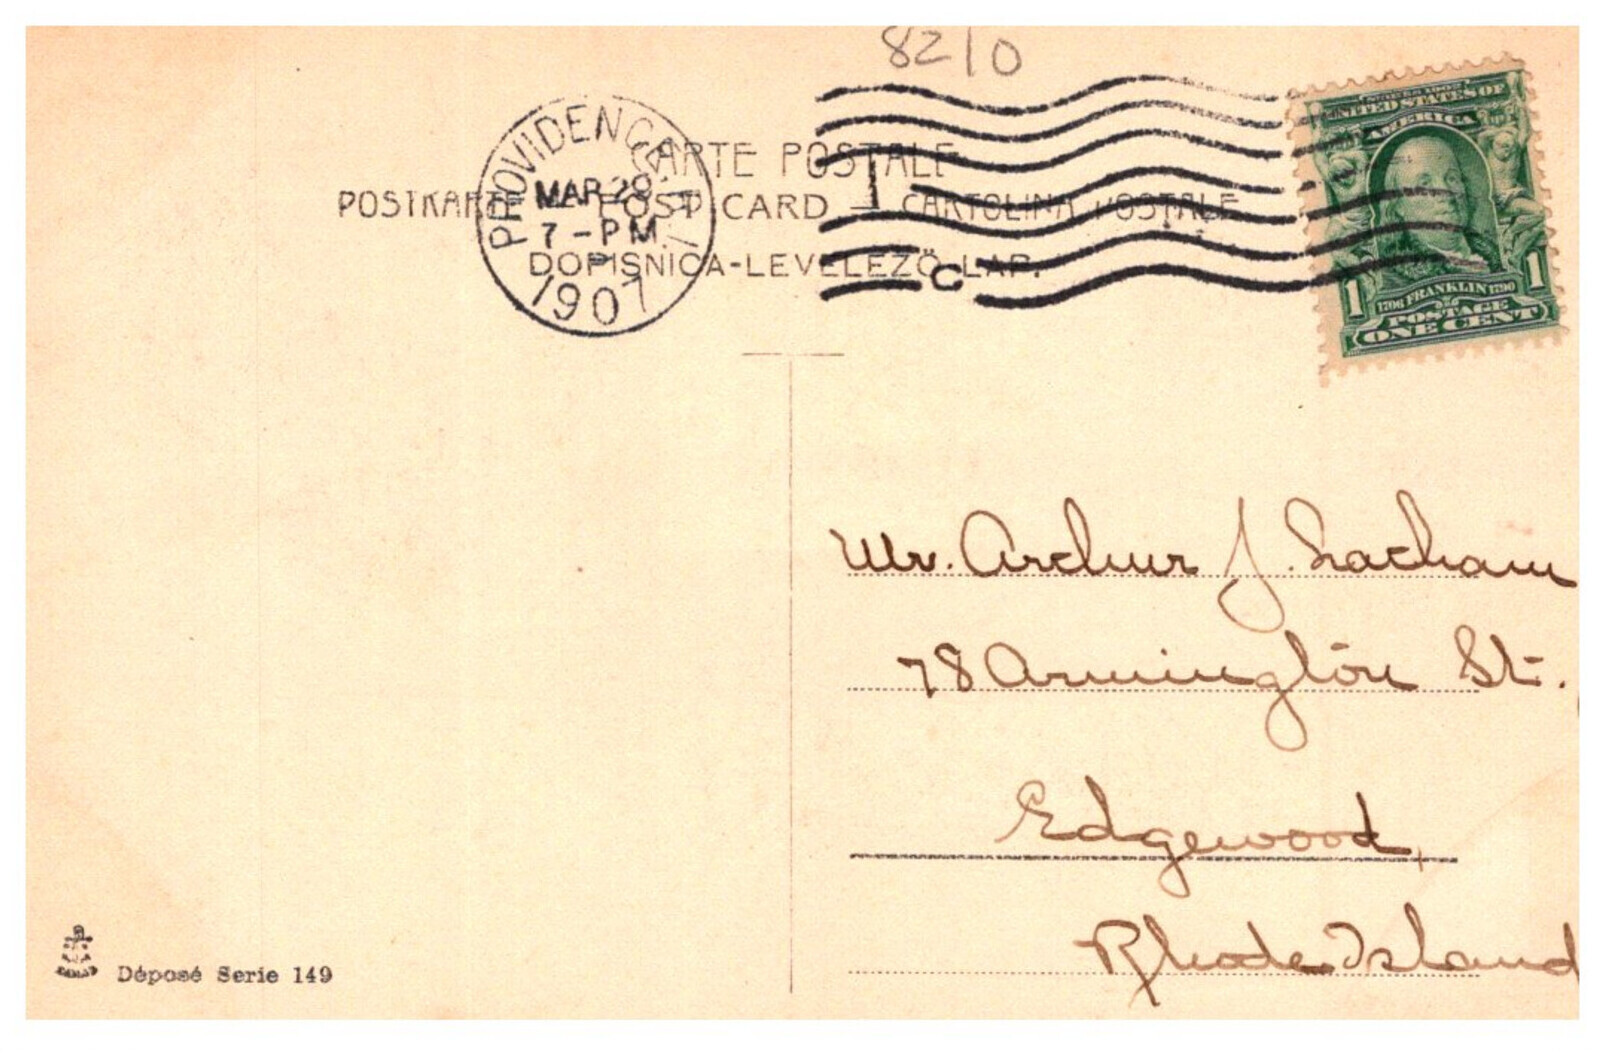 8210
PROVIDENCE, R.I.
MAR 29
7-PM
1907
CARTE POSTALE
POSTKARTE — POST CARD — CARTOLINA POSTALE
DOPISNICA-LEVELEZŐ LAP.
C
SERIES 1902
UNITED STATES OF
AMERICA
1706 FRANKLIN 1790
POSTAGE
1 ONE CENT 1
Mr. Arthur J. Latham
78 Armington St.
Edgewood,
Rhode Island
Déposé Serie 149